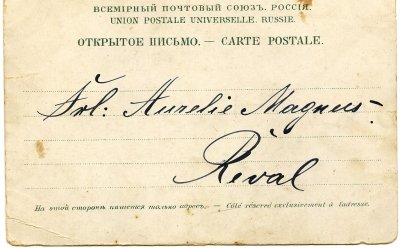 ВСЕМІРНЫЙ ПОЧТОВЫЙ СОЮЗЪ. РОССІЯ.
UNION POSTALE UNIVERSELLE. RUSSIE.
ОТКРЫТОЕ ПИСЬМО. — CARTE POSTALE.
Frl: Aurelie Magnus-
Reval
На этой сторонѣ пишется только адресъ. — Côté réservé exclusivement à l'adresse.